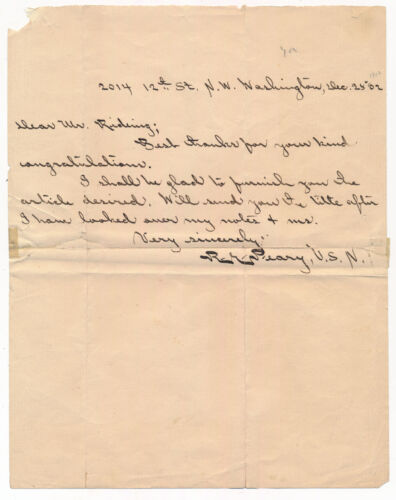 2014 12th St. N.W. Washington, Dec. 25 '02
Dear Mr. Rideing;
Best thanks for your kind
congratulations.
I shall be glad to furnish you the
article desired. Will send you the title after
I have looked over my notes & ms.
Very sincerely,
R. E. Peary, U.S.N.